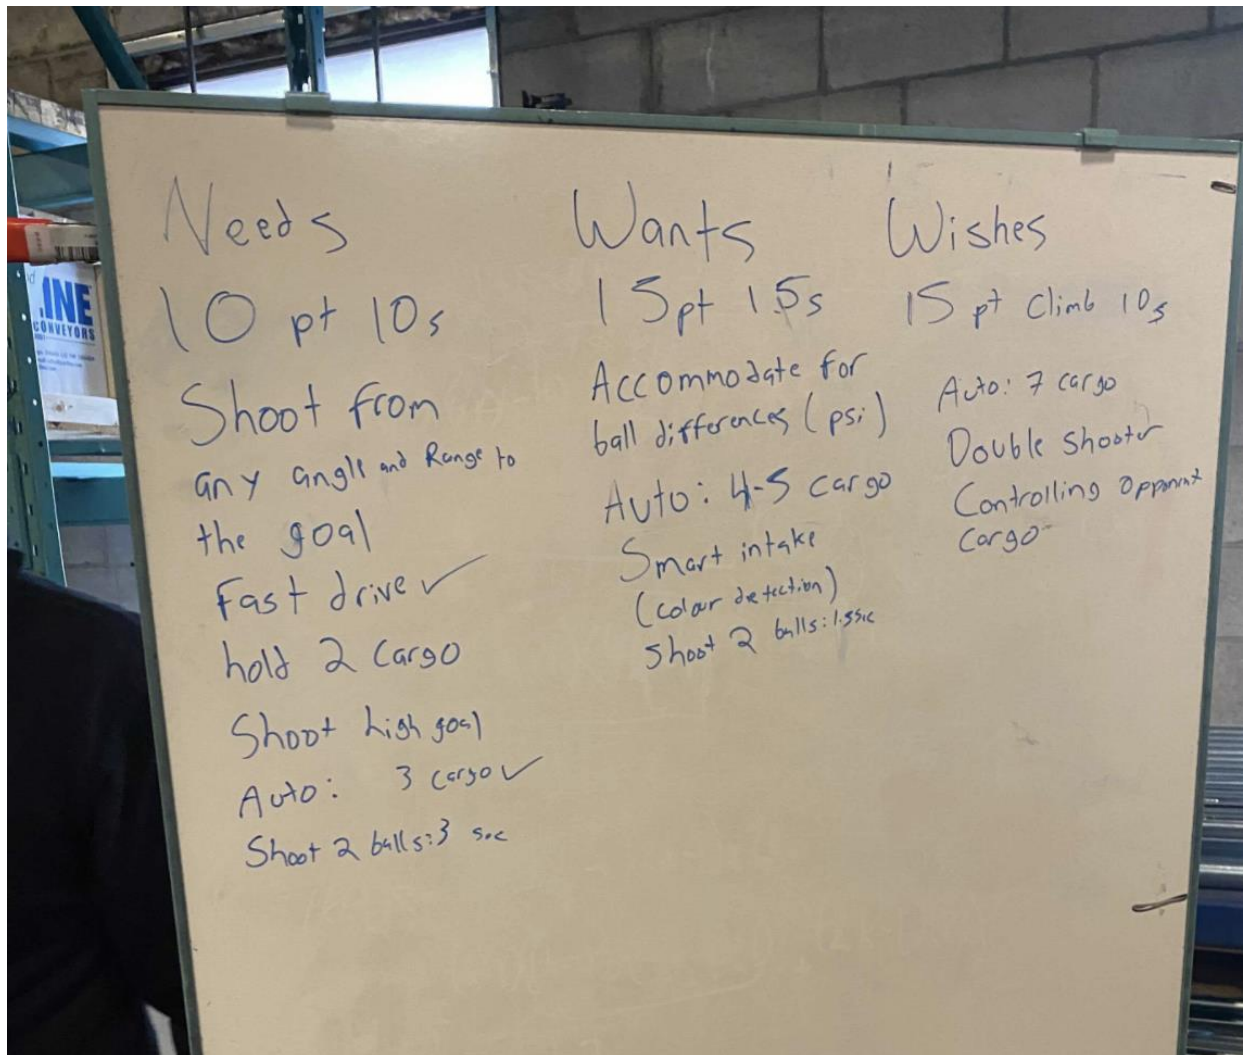 Needs
10 pt 10s
Shoot from
any angle and Range to
the goal
Fast drive ✓
hold 2 cargo
Shoot high goal
Auto: 3 cargo ✓
Shoot 2 balls: 3 sec
Wants
15pt 15s
Accommodate for
ball differences (psi)
Auto: 4-5 cargo
Smart intake
(colour detection)
Shoot 2 balls: 1.5sec
Wishes
15 pt Climb 10s
Auto: 7 cargo
Double shooter
Controlling opponent
cargo
INE
CONVEYORS